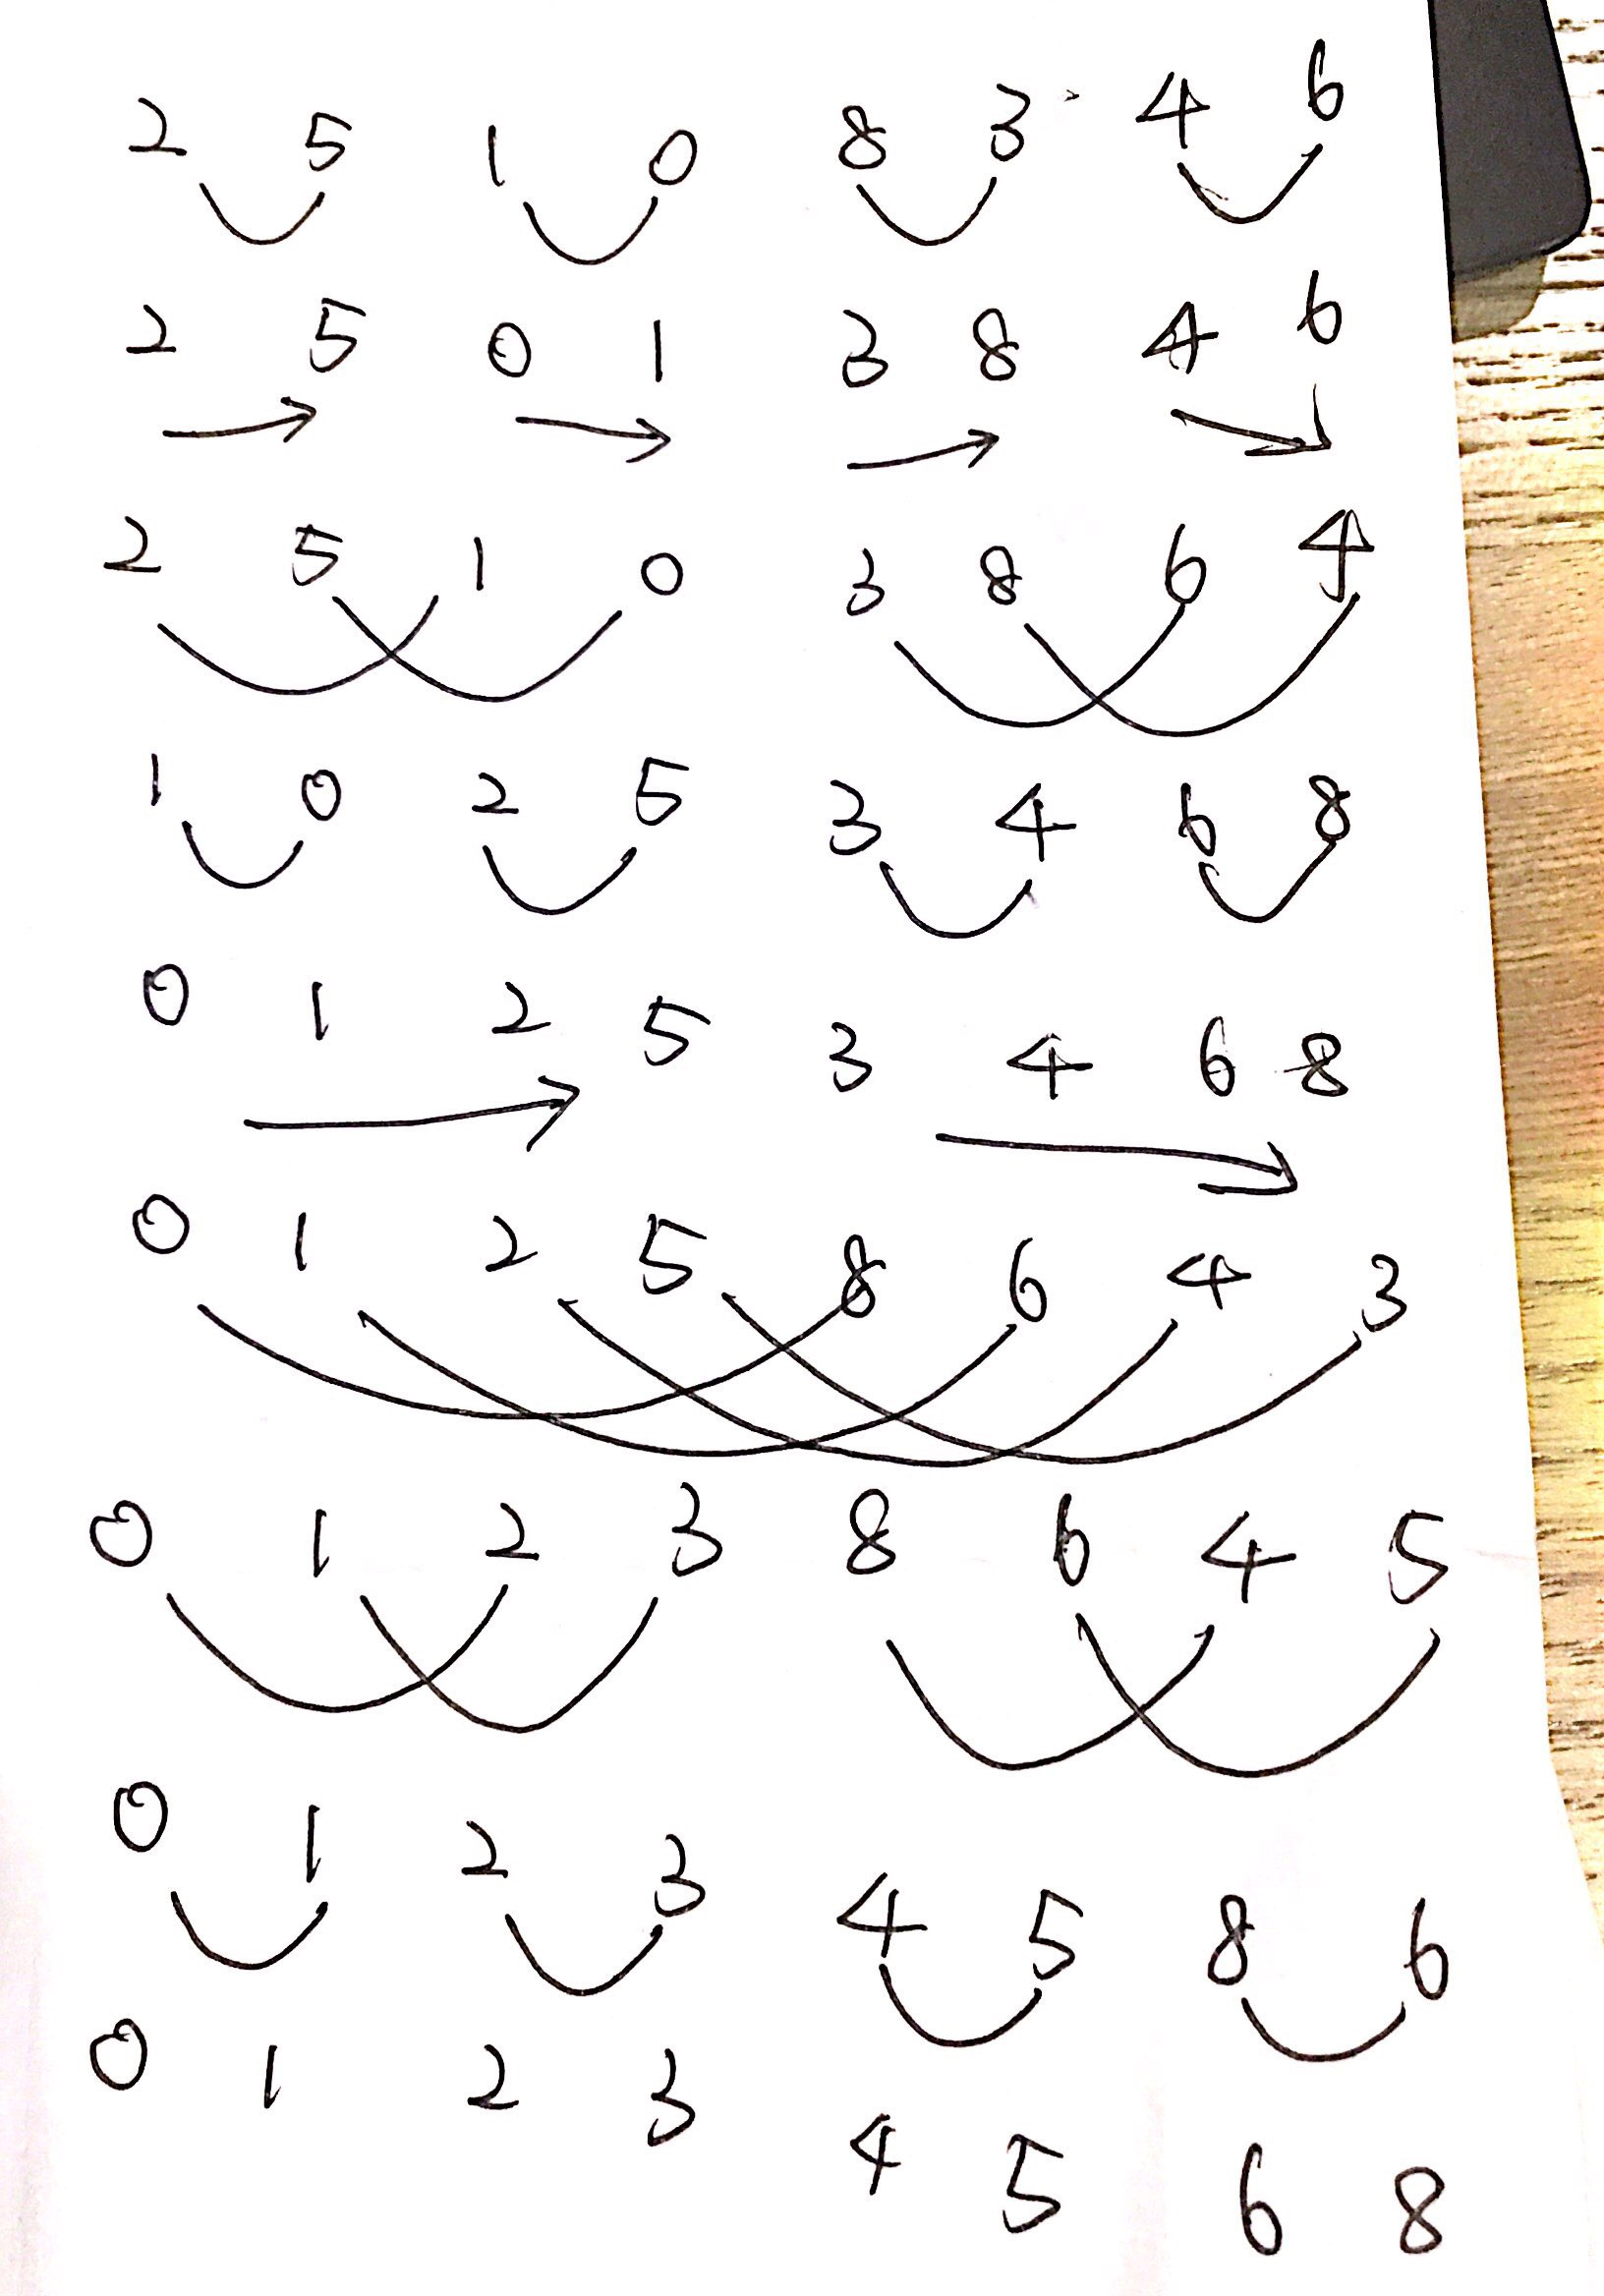 2 5 1 0 8 3 4 6
2 5 0 1 3 8 4 6
2 5 1 0 3 8 6 4
1 0 2 5 3 4 6 8
0 1 2 5 3 4 6 8
0 1 2 5 8 6 4 3
0 1 2 3 8 6 4 5
0 1 2 3 4 5 8 6
0 1 2 3 4 5 6 8